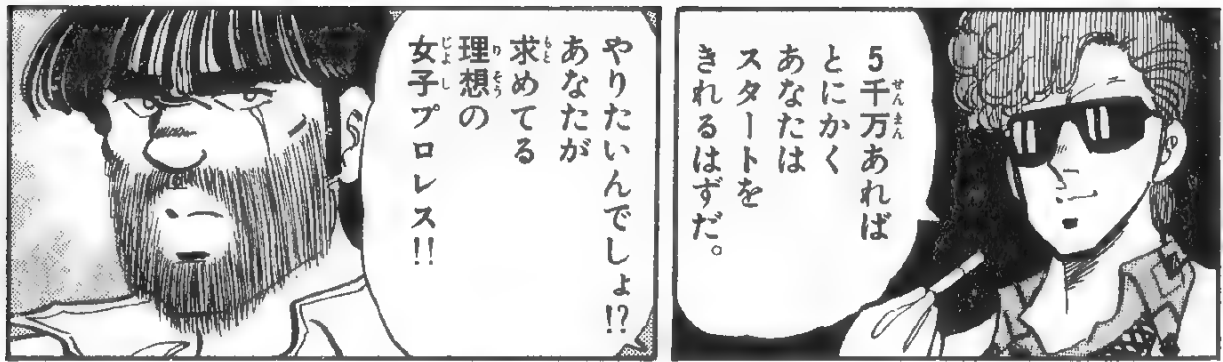 5千万あれば
とにかく
あなたは
スタートを
きれるはずだ。
やりたいんでしょ!?
あなたが
求めてる
理想の
女子プロレス!!